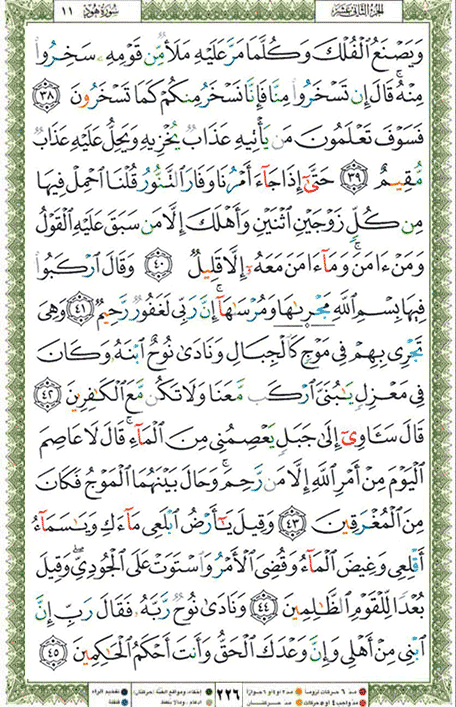 الجزء الثاني عشر سورة هود ١١
وَيَصْنَعُ ٱلْفُلْكَ وَكُلَّمَا مَرَّ عَلَيْهِ مَلَأٌ مِّن قَوْمِهِۦ سَخِرُوا۟
مِنْهُ ۚ قَالَ إِن تَسْخَرُوا۟ مِنَّا فَإِنَّا نَسْخَرُ مِنكُمْ كَمَا تَسْخَرُونَ ٣٨
فَسَوْفَ تَعْلَمُونَ مَن يَأْتِيهِ عَذَابٌ يُخْزِيهِ وَيَحِلُّ عَلَيْهِ عَذَابٌ
مُّقِيمٌ ٣٩ حَتَّىٰٓ إِذَا جَآءَ أَمْرُنَا وَفَارَ ٱلتَّنُّورُ قُلْنَا ٱحْمِلْ فِيهَا
مِن كُلٍّ زَوْجَيْنِ ٱثْنَيْنِ وَأَهْلَكَ إِلَّا مَن سَبَقَ عَلَيْهِ ٱلْقَوْلُ
وَمَنْ ءَامَنَ ۚ وَمَآ ءَامَنَ مَعَهُۥٓ إِلَّا قَلِيلٌ ٤٠ وَقَالَ ٱرْكَبُوا۟
فِيهَا بِسْمِ ٱللَّهِ مَجْر۪ىٰهَا وَمُرْسَىٰهَآ ۚ إِنَّ رَبِّى لَغَفُورٌ رَّحِيمٌ ٤١ وَهِىَ
تَجْرِى بِهِمْ فِى مَوْجٍ كَٱلْجِبَالِ وَنَادَىٰ نُوحٌ ٱبْنَهُۥ وَكَانَ
فِى مَعْزِلٍ يَـٰبُنَىَّ ٱرْكَب مَّعَنَا وَلَا تَكُن مَّعَ ٱلْكَـٰفِرِينَ ٤٢
قَالَ سَـَٔاوِىٓ إِلَىٰ جَبَلٍ يَعْصِمُنِى مِنَ ٱلْمَآءِ ۚ قَالَ لَا عَاصِمَ
ٱلْيَوْمَ مِنْ أَمْرِ ٱللَّهِ إِلَّا مَن رَّحِمَ ۚ وَحَالَ بَيْنَهُمَا ٱلْمَوْجُ فَكَانَ
مِنَ ٱلْمُغْرَقِينَ ٤٣ وَقِيلَ يَـٰٓأَرْضُ ٱبْلَعِى مَآءَكِ وَيَـٰسَمَآءُ
أَقْلِعِى وَغِيضَ ٱلْمَآءُ وَقُضِىَ ٱلْأَمْرُ وَٱسْتَوَتْ عَلَى ٱلْجُودِىِّ ۖ وَقِيلَ
بُعْدًا لِّلْقَوْمِ ٱلظَّـٰلِمِينَ ٤٤ وَنَادَىٰ نُوحٌ رَّبَّهُۥ فَقَالَ رَبِّ إِنَّ
ٱبْنِى مِنْ أَهْلِى وَإِنَّ وَعْدَكَ ٱلْحَقُّ وَأَنتَ أَحْكَمُ ٱلْحَـٰكِمِينَ ٤٥
٢٢٦